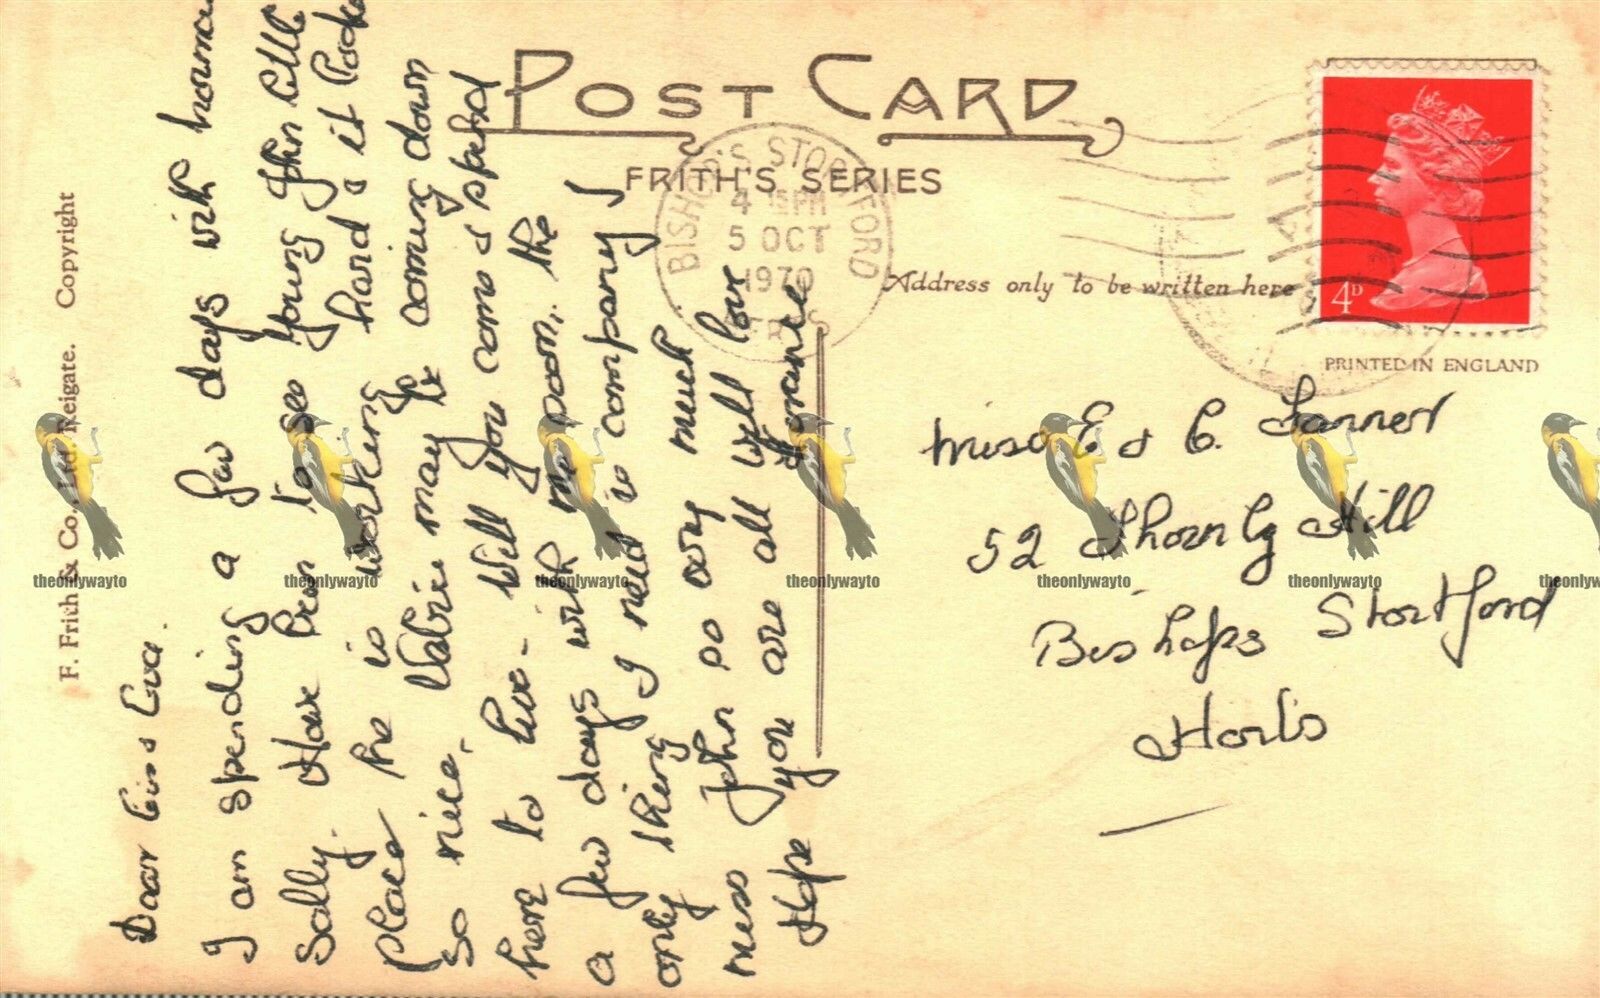 POST CARD
FRITH'S SERIES
BISHOP'S STORTFORD
4 15PM
5 OCT
1970
HERTS
Address only to be written here
4D
PRINTED IN ENGLAND
F. Frith & Co., Ltd. Reigate. Copyright
I am spending a few days with
Sally. Have been to see young John
place he is working hard & it
so nice. may be coming down
here to live. Will you come & spend
a few days with me soon, the
only thing I need is company I
miss John so very much
Hope you are all well love
Miss E & C.
52 Thornly Hill
Bishops Stortford
Herts
theonlywayto
theonlywayto
theonlywayto
theonlywayto
theonlywayto
theonlywayto
theonlyw